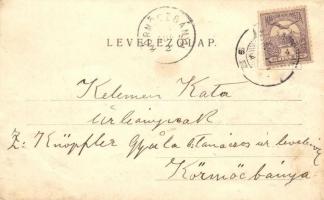 KÖRMÖCZBÁNYA
LEVELEZŐLAP.
Kelemen Kata
úrleánynak
Z: Knöpfler Gyula tanácsos úr levelével
Körmöcbánya